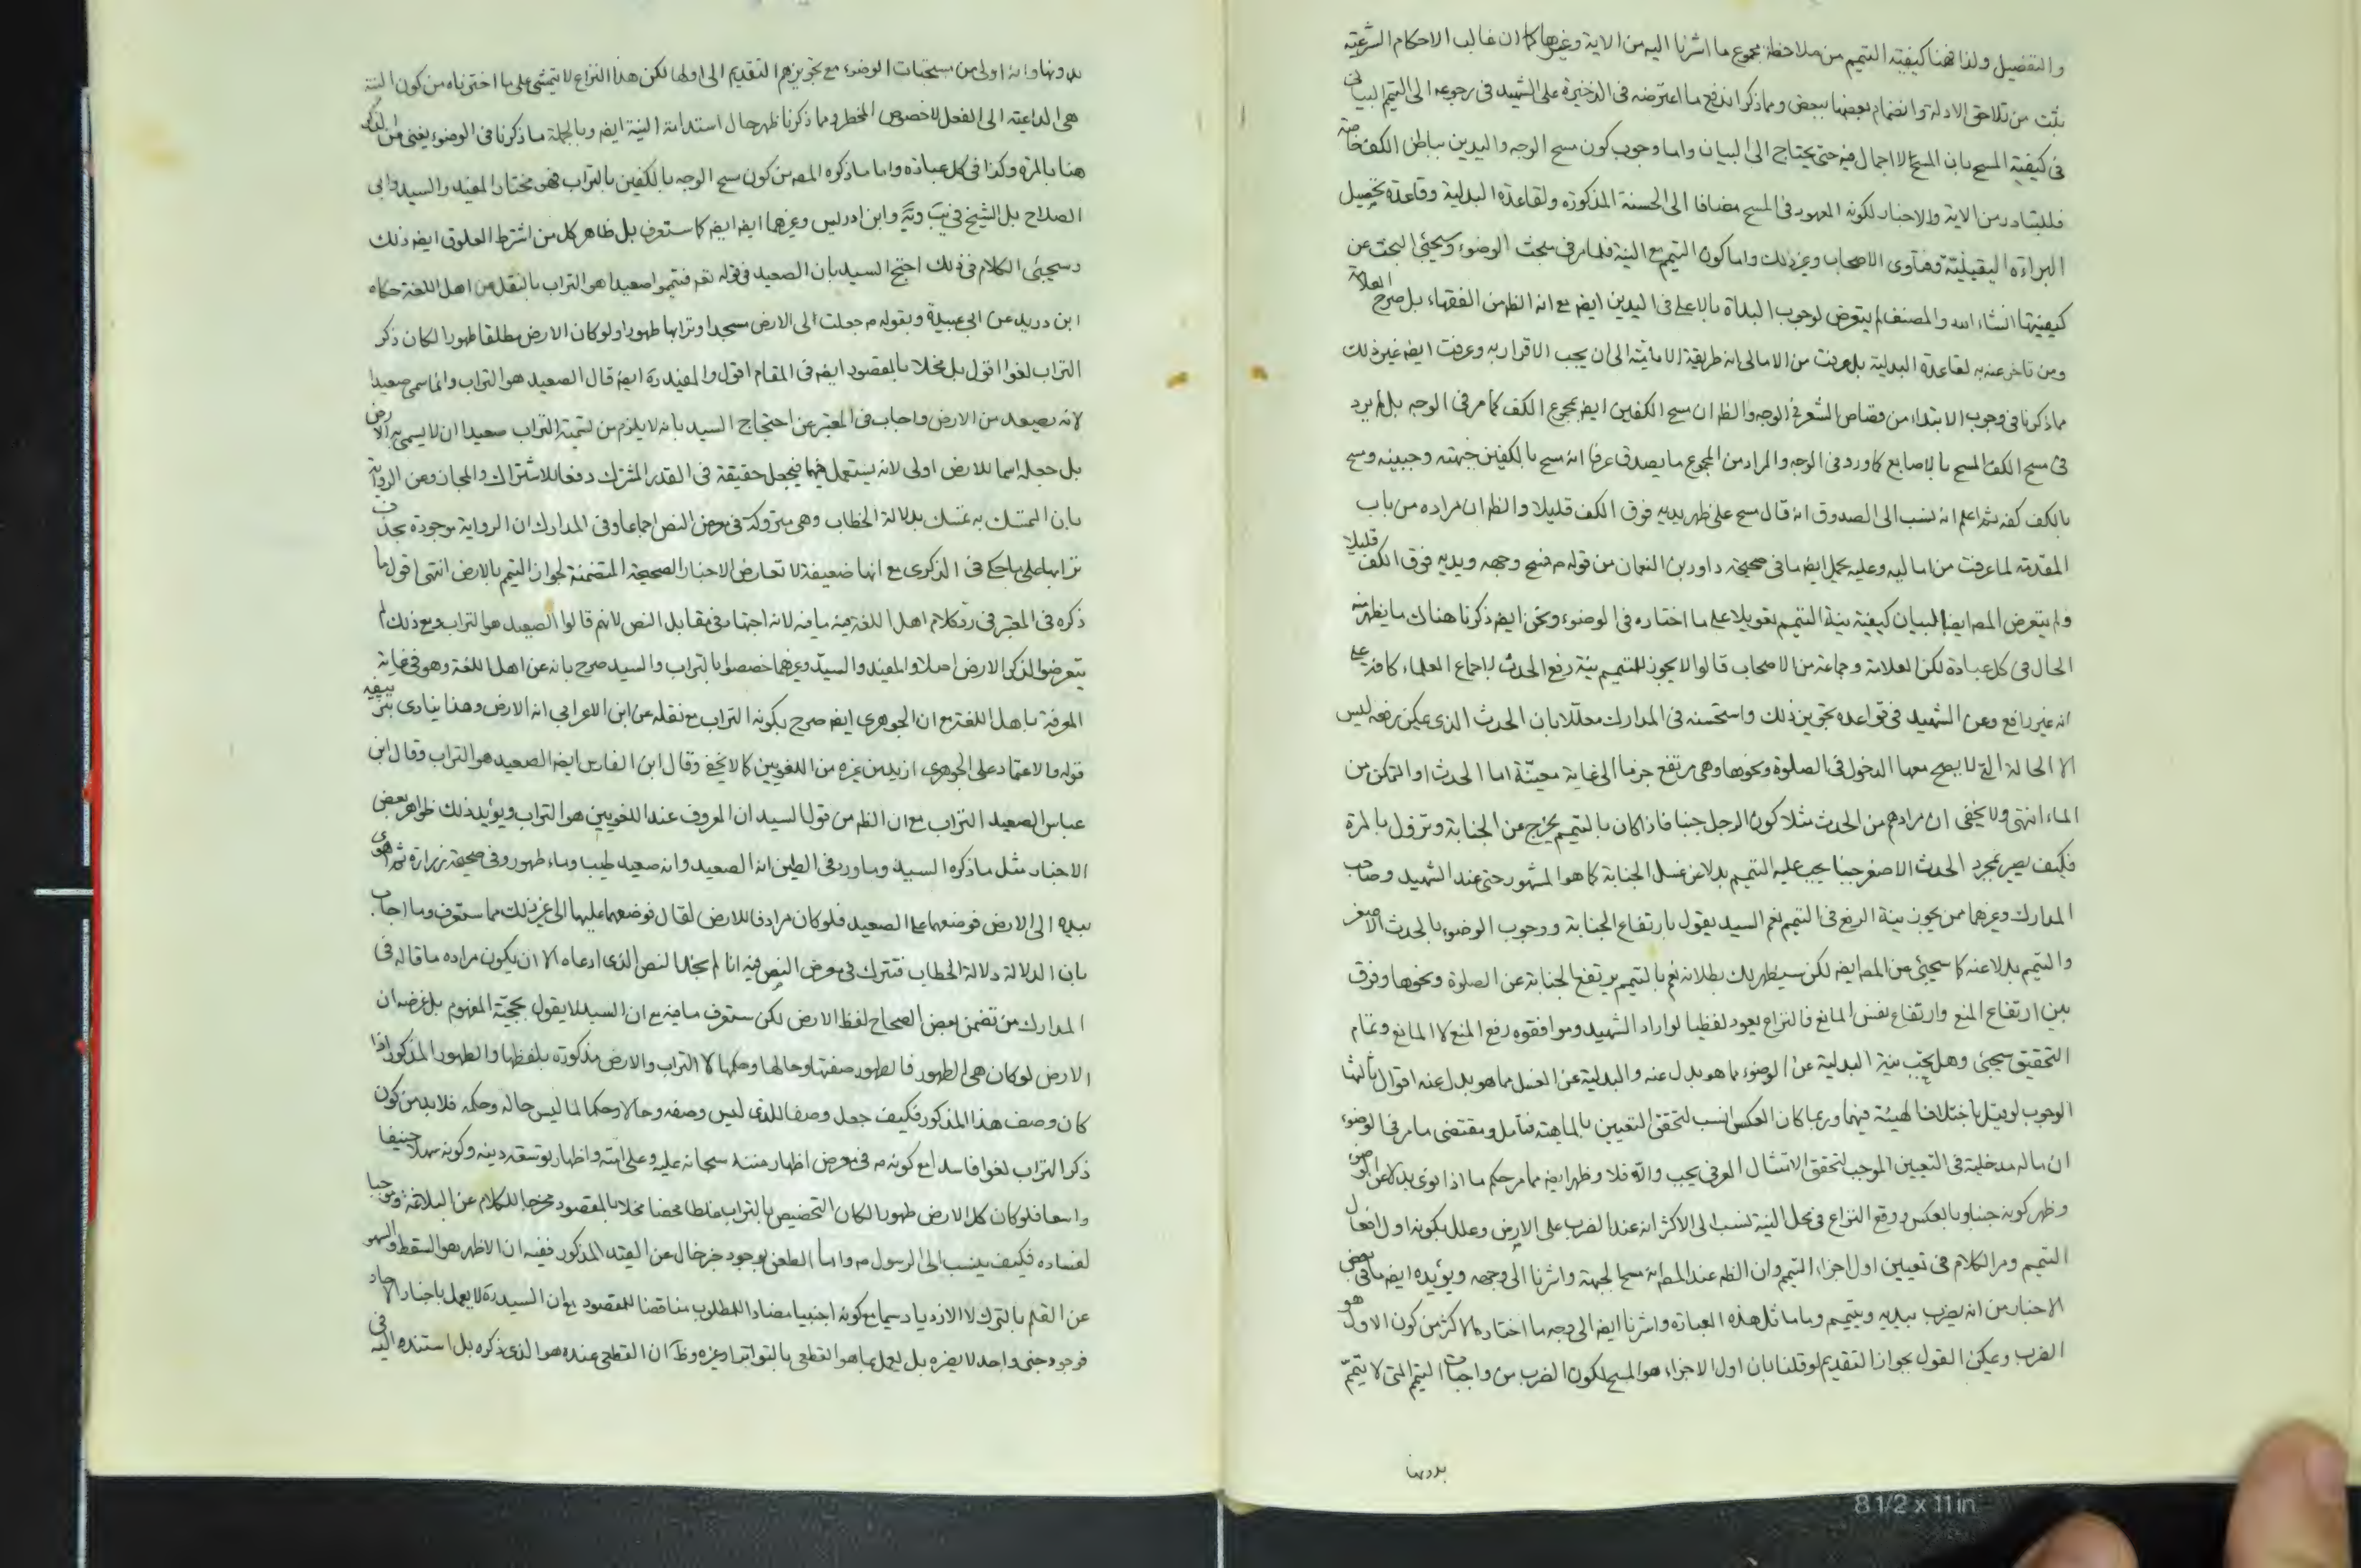 والتفصيل ولذا فهنا كيفية التيمم من ملاحظة مجموع ما اشرنا اليه من الاية وغيرها كما ان غالب الاحكام الشرعية
يثبت من تلاحق الادلة وانضمام بعضها ببعض ومما ذكرنا اندفع ما اعترضه فى الذخيرة على الشهيد فى رجوعه الى التيمم البيانى
فى كيفية المسح بان المسح لا اجمال فيه حتى يحتاج الى البيان واما وجوب كون مسح الوجه واليدين بباطن الكف خاصة
فللتبادر من الاية والاخبار لكونه المعهود فى المسح مضافا الى الحسنة المذكورة ولقاعدة البدلية وقاعدة تحصيل
البراءة اليقينية وفتاوى الاصحاب وغير ذلك واما كون التيمم مع النية فلما مر فى مبحث الوضوء وسيجئ البحث عن
كيفيتها انشاء الله والمصنف لم يتعرض لوجوب البداة بالاعلى فى اليدين ايضا مع انه الظ من الفقهاء بل صرح العلامة
ومن تاخر عنه به لقاعدة البدلية بل عرفت من الامالى انه طريقة الامامية الى ان يجب الاقرار به وعرفت ايضا غير ذلك
مما ذكرنا فى وجوب الابتداء من قصاص الشعر فى الوجه والظ ان مسح الكفين ايضا بمجموع الكف كما مر فى الوجه بل لم يرد
فى مسح الكف المسح بالاصابع كما ورد فى الوجه والمراد من المجموع ما يصدق عرفا انه مسح بالكفين جبهته وجبينه ومسح
بالكف كفه ثم اعلم انه نسب الى الصدوق انه قال مسح على ظهر يديه فوق الكف قليلا والظ ان مراده من باب
المقدمة لما عرفت من اماليه وعليه يحمل ايضا ما فى صحيحة داود بن النعمان من قوله م فمسح وجهه ويديه فوق الكف قليلا
ولم يتعرض المص ايضا لبيان كيفية نية التيمم تعويلا على ما اختاره فى الوضوء ونحن ايضا ذكرنا هناك ما يظهر منه
الحال فى كل عبادة لكن العلامة وجماعة من الاصحاب قالوا لا يجوز للمتيمم نية رفع الحدث لاجماع العلماء كافة على
انه غير رافع وعن الشهيد فى قواعده تجويز ذلك واستحسنه فى المدارك معللا بان الحدث الذى يمكن رفعه ليس
الا الحالة التى لا يصح معها الدخول فى الصلوة ونحوها وهى مرتفع جزما الى غاية معينة اما الحدث او التمكن من
الماء انتهى ولا يخفى ان مرادهم من الحدث مثلا كون الرجل جنبا فاذا كان بالتيمم يخرج عن الجنابة وتزول بالمرة
فكيف يصير بمجرد الحدث الاصغر جنبا يجب عليه التيمم بدلا عن غسل الجنابة كما هو المشهور حتى عند الشهيد وصاحب
المدارك وغيرهما ممن يجوز نية الرفع فى التيمم نعم السيد يقول بارتفاع الجنابة ووجوب الوضوء بالحدث الاصغر
والتيمم بدلا عنه كما سيجئ من المص ايضا لكن سيظهر لك بطلانه نعم بالتيمم يرتفع الجنابة عن الصلوة ونحوها وفرق
بين ارتفاع المنع وارتفاع نفس المانع فالنزاع يعود لفظيا لو اراد الشهيد وموافقوه رفع المنع لا المانع وتمام
التحقيق سيجئ وهل يجب نية البدلية عن الوضوء مما هو بدل عنه والبدلية عن الغسل مما هو بدل عنه اقوال ثالثها
الوجوب لو قيل باختلاف الهيئة فيهما وربما كان العكس انسب لتحقق التعيين بالماهية فتأمل ومقتضى ما مر فى الوضوء
ان ماله مدخلية فى التعيين الموجب لتحقق الامتثال العرفى يجب والا فلا وظهر ايضا مما مر حكم ما اذا نوى بدلا عن الوضوء
وظهر كونه جنبا وبالعكس ووقع النزاع فى محل النية نسب الى الاكثر انه عند الضرب على الارض وعلل بكونه اول افعال
التيمم ومر الكلام فى تعيين اول اجزاء التيمم وان الظ عند المص انه مسح الجبهة واشرنا الى وجهه ويؤيده ايضا ما فى بعض
الاخبار من انه يضرب بيديه ويتيمم وبامثال هذه العبارة واشرنا ايضا الى وجه ما اختاره الاكثر من كون الاول هو
الضرب ويمكن القول بجواز التقديم لو قلنا بان اول الاجزاء هو المسح لكون الضرب من واجبات التيمم التى لا يتم
بدونها
بدونها وانه اولى من مستحبات الوضوء مع تجويزهم التقديم الى اولها لكن هذا النزاع لا يتمشى على ما اخترناه من كون النية
هى الداعية الى الفعل لا خصوص المخطر ومما ذكرنا ظهر حال استدامة النية ايضا وبالجملة ما ذكرنا فى الوضوء يغنى من الذكر
هنا بالمرة وكذا فى كل عبادة واما ما ذكره المص من كون مسح الوجه بالكفين بالتراب فهو مختار المفيد والسيد وابى
الصلاح بل الشيخ فى وابن ادريس وغيرهما ايضا كما ستعرف بل ظاهر كل من اشترط العلوق ايضا ذلك
وسيجئ الكلام فى ذلك احتج السيد بان الصعيد فى قوله تعم فتيمموا صعيدا هو التراب بالنقل من اهل اللغة حكاه
ابن دريد عن ابى عبيدة وبقوله م جعلت لى الارض مسجدا وترابها طهورا ولو كان الارض مطلقا طهورا لكان ذكر
التراب لغوا اقول بل مخلا بالمقصود ايضا فى المقام اقول والمفيد ره ايضا قال الصعيد هو التراب وانما سمى صعيدا
لانه يصعد من الارض واجاب فى المعتبر عن احتجاج السيد بانه لا يلزم من تسمية التراب صعيدا ان لا يسمى به الارض
بل جعله اسما للارض اولى لانه يستعمل فيهما فيجعل حقيقة فى القدر المشترك دفعا للاشتراك والمجاز وعن الرواية
بان التمسك به تمسك بدلالة الخطاب وهى متروكة فى معرض النص اجماعا وفى المدارك ان الرواية موجودة بحذف
ترابها على ما حكى فى الذكرى مع انها ضعيفة لا تعارض الاخبار الصحيحة المتضمنة لجواز التيمم بالارض انتهى اقول ما
ذكره فى المعتبر فى رد كلام اهل اللغة فيه ما فيه لانه اجتهاد فى مقابل النص لانهم قالوا الصعيد هو التراب ومع ذلك لم
يتعرضوا لذكر الارض اصلا والمفيد والسيد وغيرهما خصصوا بالتراب والسيد صرح بانه عن اهل اللغة وهو فى غاية
المعرفة باهل اللغة مع ان الجوهرى ايضا صرح بكونه التراب مع نقله عن ابن الاعرابى انه الارض وهذا ينادى
قوله والاعتماد على الجوهرى ازيد من غيره من اللغويين كما لا يخفى وقال ابن الفارس ايضا الصعيد هو التراب وقال ابن
عباس الصعيد التراب مع ان الظ من قول السيد ان المعروف عند اللغويين هو التراب ويؤيد ذلك ظواهر بعض
الاخبار مثل ما ذكره السيد وما ورد فى الطين انه الصعيد وانه صعيد طيب وماء طهور وفى صحيحة زرارة ثم اهوى
بيديه الى الارض فوضعهما على الصعيد فلو كان مرادفا للارض لقال فوضعهما عليها الى غير ذلك مما ستعرف وما اجاب
بان الدلالة دلالة الخطاب فتترك فى معرض النص فيه انا لم نجد النص الذى ادعاه الا ان يكون مراده ما قاله فى
المدارك من تضمن بعض الصحاح لفظ الارض لكن ستعرف ما فيه مع ان السيد لا يقول بحجية المفهوم بل غرضه ان
الارض لو كان هى الطهور فالطهور صفتها وحالها وحكمها لا التراب والارض مذكورة بلفظها والطهور المذكور اذا
كان وصف هذا المذكور فكيف جعل وصفا للذى ليس وصفه وحالا وحكما لما ليس حاله وحكمه فلا بد من كون
ذكر التراب لغوا فاسدا مع كونه م فى معرض اظهار مننه سبحانه عليه وعلى امته واظهار توسعة دينه وكونه سهلا حنيفا
واسعا فلو كان كل الارض طهورا لكان التخصيص بالتراب غلطا محضا مخلا بالمقصود مخرجا للكلام عن البلاغة وموجبا
لفساده فكيف ينسب الى الرسول م واما الطعن بوجود خبر خال عن القيد المذكور ففيه ان الاظهر هو السقط والسهو
عن القلم بالترك لا الازدياد سيما مع كونه اجنبيا مضادا للمطلوب مناقضا للمقصود مع ان السيد ره لا يعمل باخبار الاحاد
فوجود خبر واحد لا يضره بل يعمل بما هو القطعى بالتواتر او غيره وظ ان القطعى عنده هو الذى ذكره بل استنده اليه فى
8 1/2 x 11 in